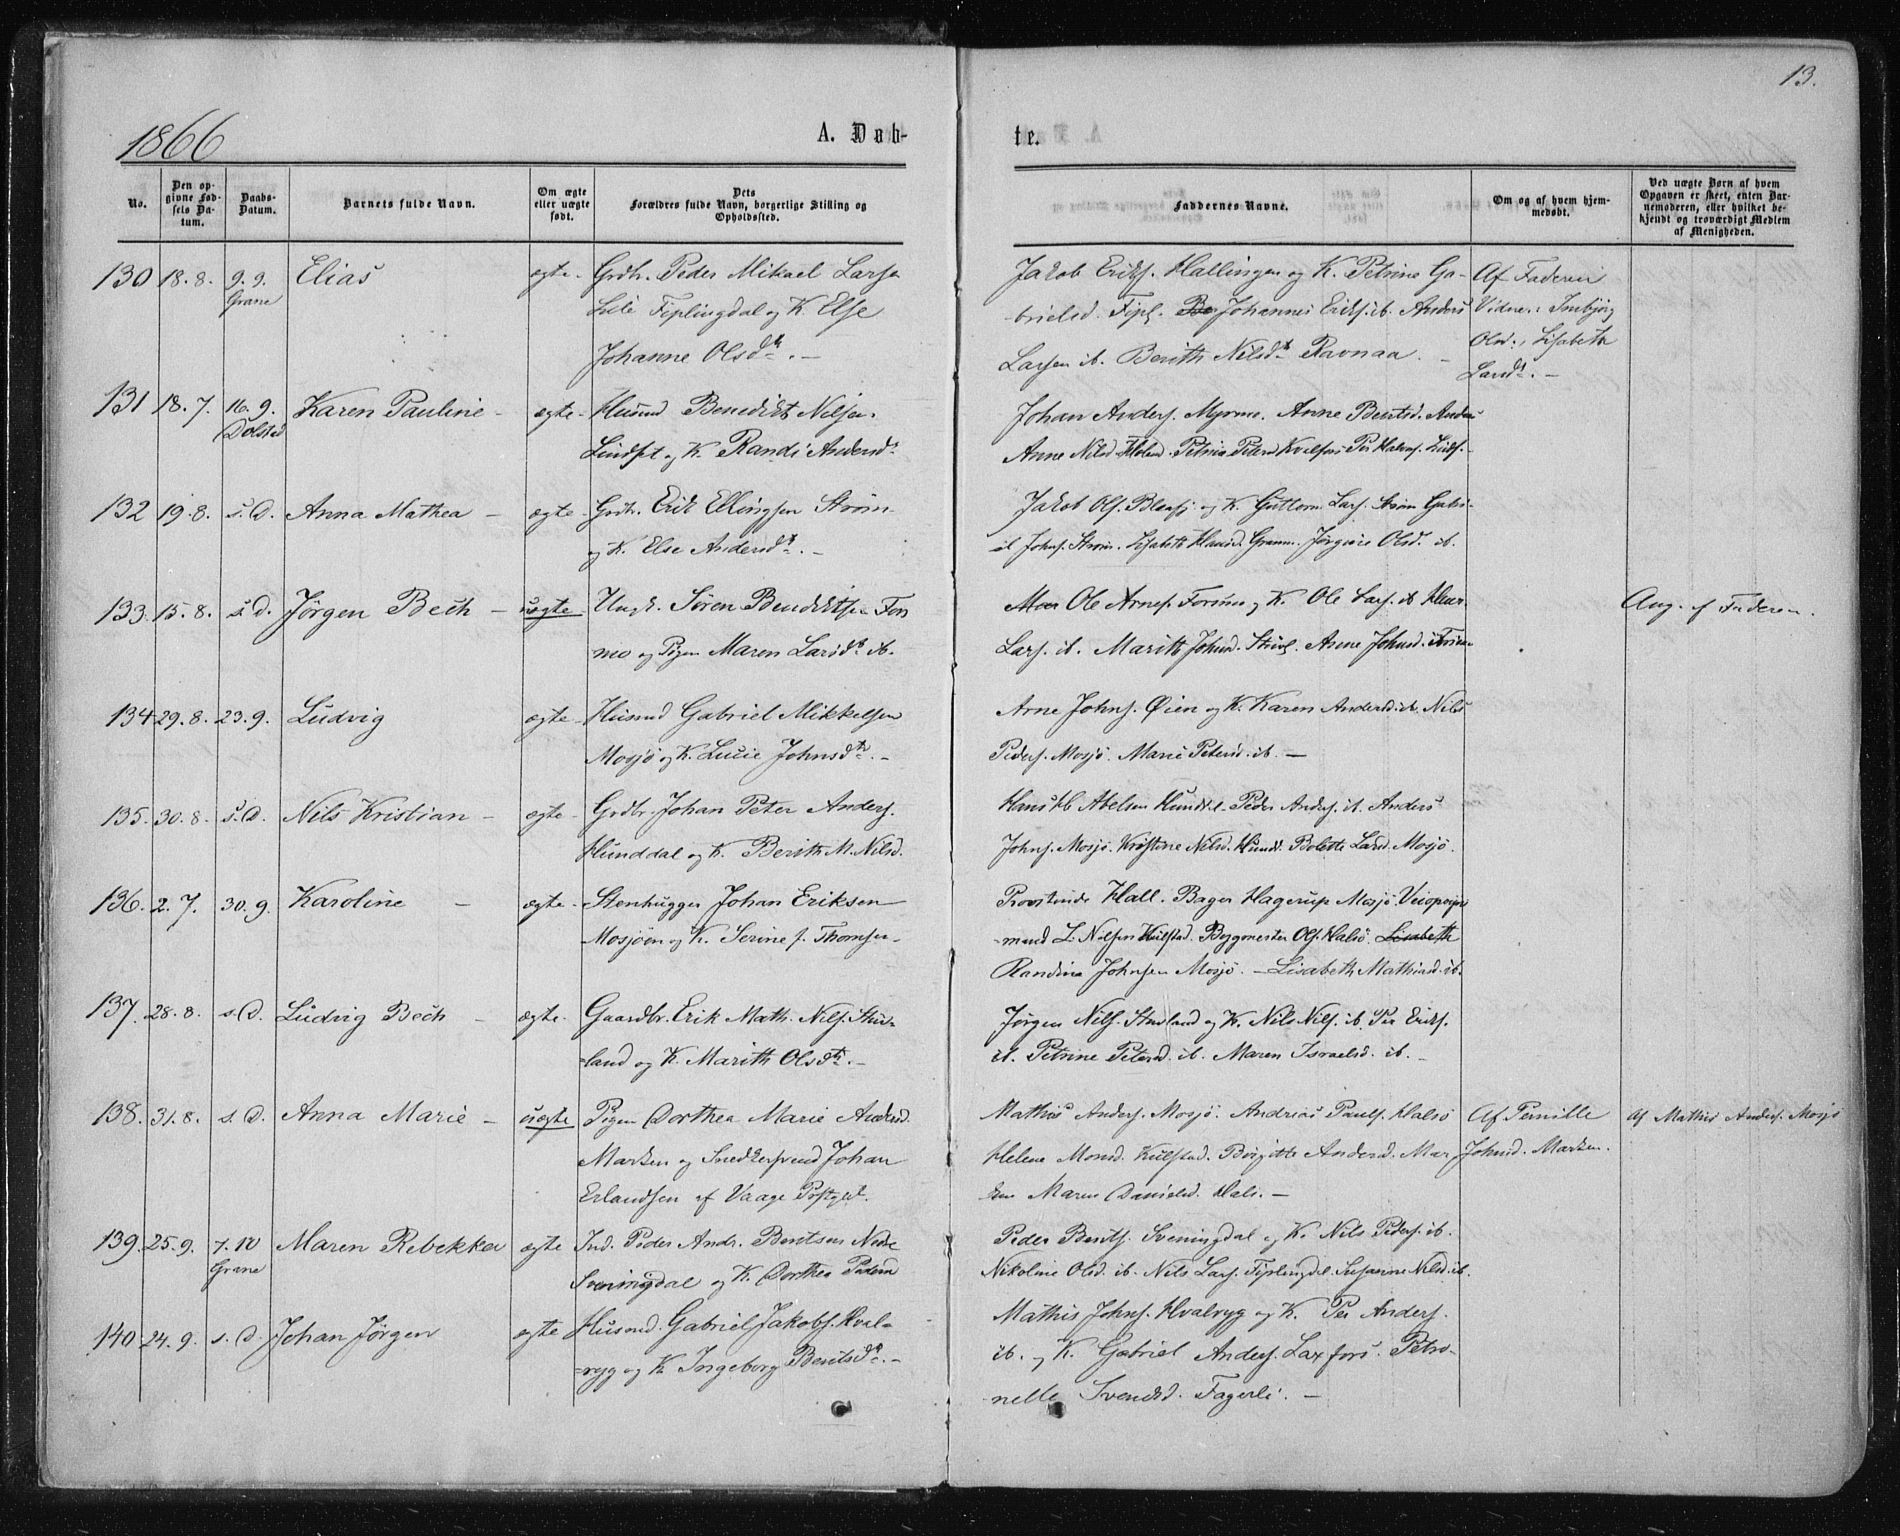 13.
1866
A. Døb-
te.
No.
Den op-
givne Fød-
sels Da-
tum.
Daabs-
Datum.
Barnets fulde Navn.
Om ægte
eller uægte
født.
Dets
Forældres fulde Navn, borgerlige Stilling og
Opholdssted.
Faddernes Navne.
Om og af hvem hjem-
medøbt.
Ved uægte Børn af hvem
Opgaven er skeet, enten Bar-
nemoderen, eller hvilket be-
kjendt og troværdigt Medlem
af Menigheden.
130 18.8. 9.9. Elias ægte- Grdb. Peder Mikael Larse
Grane
Lille Fiplingdal og K. Else
Johanne Olsdtr. -
Jakob Eriks. Hallingen og K. Petrine Ga-
brielsd. Fipl. Johannes Eriks. ib. Anders
Larsen ib. Berith Nilsdtr Ravnaa. -
Af Faderen
Vidner: Ingebjørg
Olsd., Lisabeth
Larsdtr. -
131 18.7. 16.9. Karen Pauline - ægte- Husmd Benedikt Nilsen
Dolsted
Lindset og K. Randi Andersdtr
Johan Anders. Myrmo. Anne Bentsd. Anders
Anne Nilsd Petrine Petersd Kvalfors Per Halvors.
132 19.8. s.D. Anna Mathea - ægte- Grdb. Erik Ellingsen Strøm
og K. Else Andersdtr. -
Jakob Ols. og K. Guttorm Lars. Strøm Gabri-
el Johns. Strøm. Lisabeth Hansd. Jørgine Olsd. ib.
133. 15.8. s.D. Jørgen Bech - uægte Ungk. Søren Benediktsen For
mo og Pigen Maren Larsdtr ib.
Ole Arnes. Formo og K. Ole Lars. ib
Lars. ib. Marith Johnsd. Anne Johnsd.
Ang. af Faderen.
134 29.8. 23.9. Ludvig ægte- Husmd Gabriel Mikkelsen
Mosjø og K. Lucie Johnsdtr. -
Arne Johns. Øien og K. Karen Andersd. ib. Nils
Peders. Mosjø. Marie Petersd. ib. -
135. 30.8. s.D. Nils Kristian - ægte- Grdbr. Johan Peter Anders.
Hunddal og K. Berith M. Nilsd.
Hans Abelsen Hundd. Peder Anders. ib. Anders
Johns. Mosjø. Kristine Nilsd. Hundd. Bolette Larsd. Mosjø.
136. 2.7. 30.9. Karoline - ægte- Stenhugger Johan Eriksen
Mosjøen og K. Serine f. Thomsen -
Provstinde Hall. Bager Hagerup Mosjø. Veiopsyns
-mand L. Nilsen Kulstad. Bygmester Ols. Halsø. Lisabeth
Randine Johnsen Mosjø. - Lisabeth Mathisd. ib.
137. 28.8. s.D. Ludvig Bech - ægte. Gaardbr. Erik Math. Nils. Stu-
=land og K. Marith Olsdtr. -
Jørgen Nils. Stuland og K. Nils Nils. ib. Per Eriks.
ib. Petrine Petersd. ib. Maren Israelsd. ib. -
138. 31.8. s.D. Anna Marie - uægte Pigen Dorthea Marie Andersd.
Marken og Snedkersvend Johan
Erlandsen af Vaage Præstgjd.
Mathis Anders. Mosjø. Andreas Pauls. Halsø
Helene Monsd. Kulstad. Birgitte Andersd. Mar
ken Maren Danielsd. Hals. -
Af Pernille
Johnsd. Marken.
Af Mathis Anders. Mosjø
139. 25.9. 7.10 Maren Rebekka ægte Ind. Peder Andr. Bentsen Nedre
Grane
Sveningdal og K. Dorthea Pedersd
Peder Bents. Sveningdal og K. Nils Peders. ib.
Nikoline Olsd. ib. Nils Lars. Fiplingdal. Susanne Nilsd. ib.
140. 24.9. s.D. Johan Jørgen ægte Husmd. Gabriel Jakobs. Hval-
=ryg og K. Ingeborg Bentsdtr. -
Mathis Johns. Hvalryg og K. Per Anders.
ib. og K. Gabriel Anders. Laxfors. Petro-
nelle Svendsd. Fagerli. -